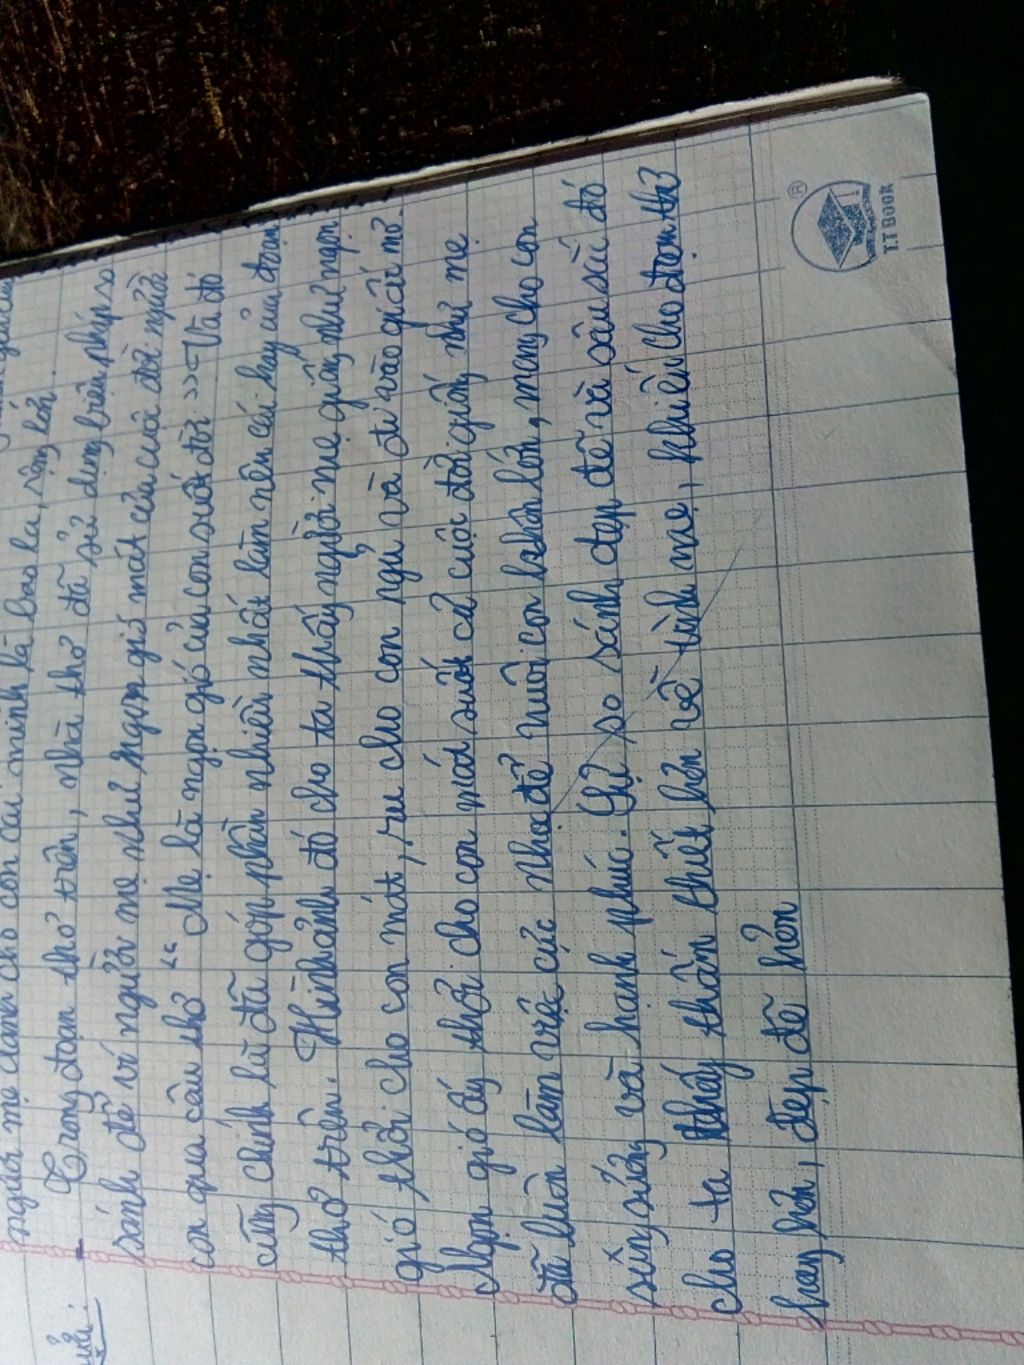 người mẹ dành cho con cái mình là bao la, rộng lớn.
- Trong đoạn thơ trên, nhà thơ đã sử dụng biện pháp so
sánh để ví người mẹ như ngọn gió mát của cuộc đời người
con qua câu thơ "Mẹ là ngọn gió của con suốt đời". Và đó
cũng chính là đã góp phần nhiều nhất làm nên cái hay của đoạn
thơ trên. Hình ảnh đó cho ta thấy người mẹ giống như ngọn
gió thổi cho con mát, ru cho con ngủ và đi vào giấc mơ.
Ngọn gió ấy thổi cho con mát suốt cả cuộc đời giống như mẹ
đã luôn làm việc cực nhọc để nuôi con khôn lớn, mang cho con
sung sướng và hạnh phúc. Sự so sánh đẹp đẽ và sâu sắc đó
cho ta thấy thấm thiết hơn về tình mẹ, khiến cho đoạn thơ
hay hơn, đẹp đẽ hơn
T.T BOOK
®